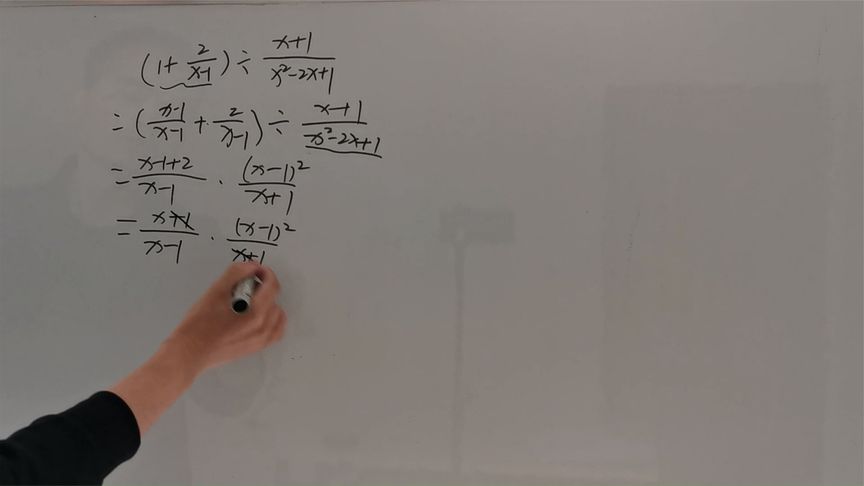 (1+ 2/(x-1)) ÷ (x+1)/(x²-2x+1)
= ((x-1)/(x-1) + 2/(x-1)) ÷ (x+1)/(x²-2x+1)
= (x-1+2)/(x-1) · (x-1)²/(x+1)
= (x+1)/(x-1) · (x-1)²/(x+1)